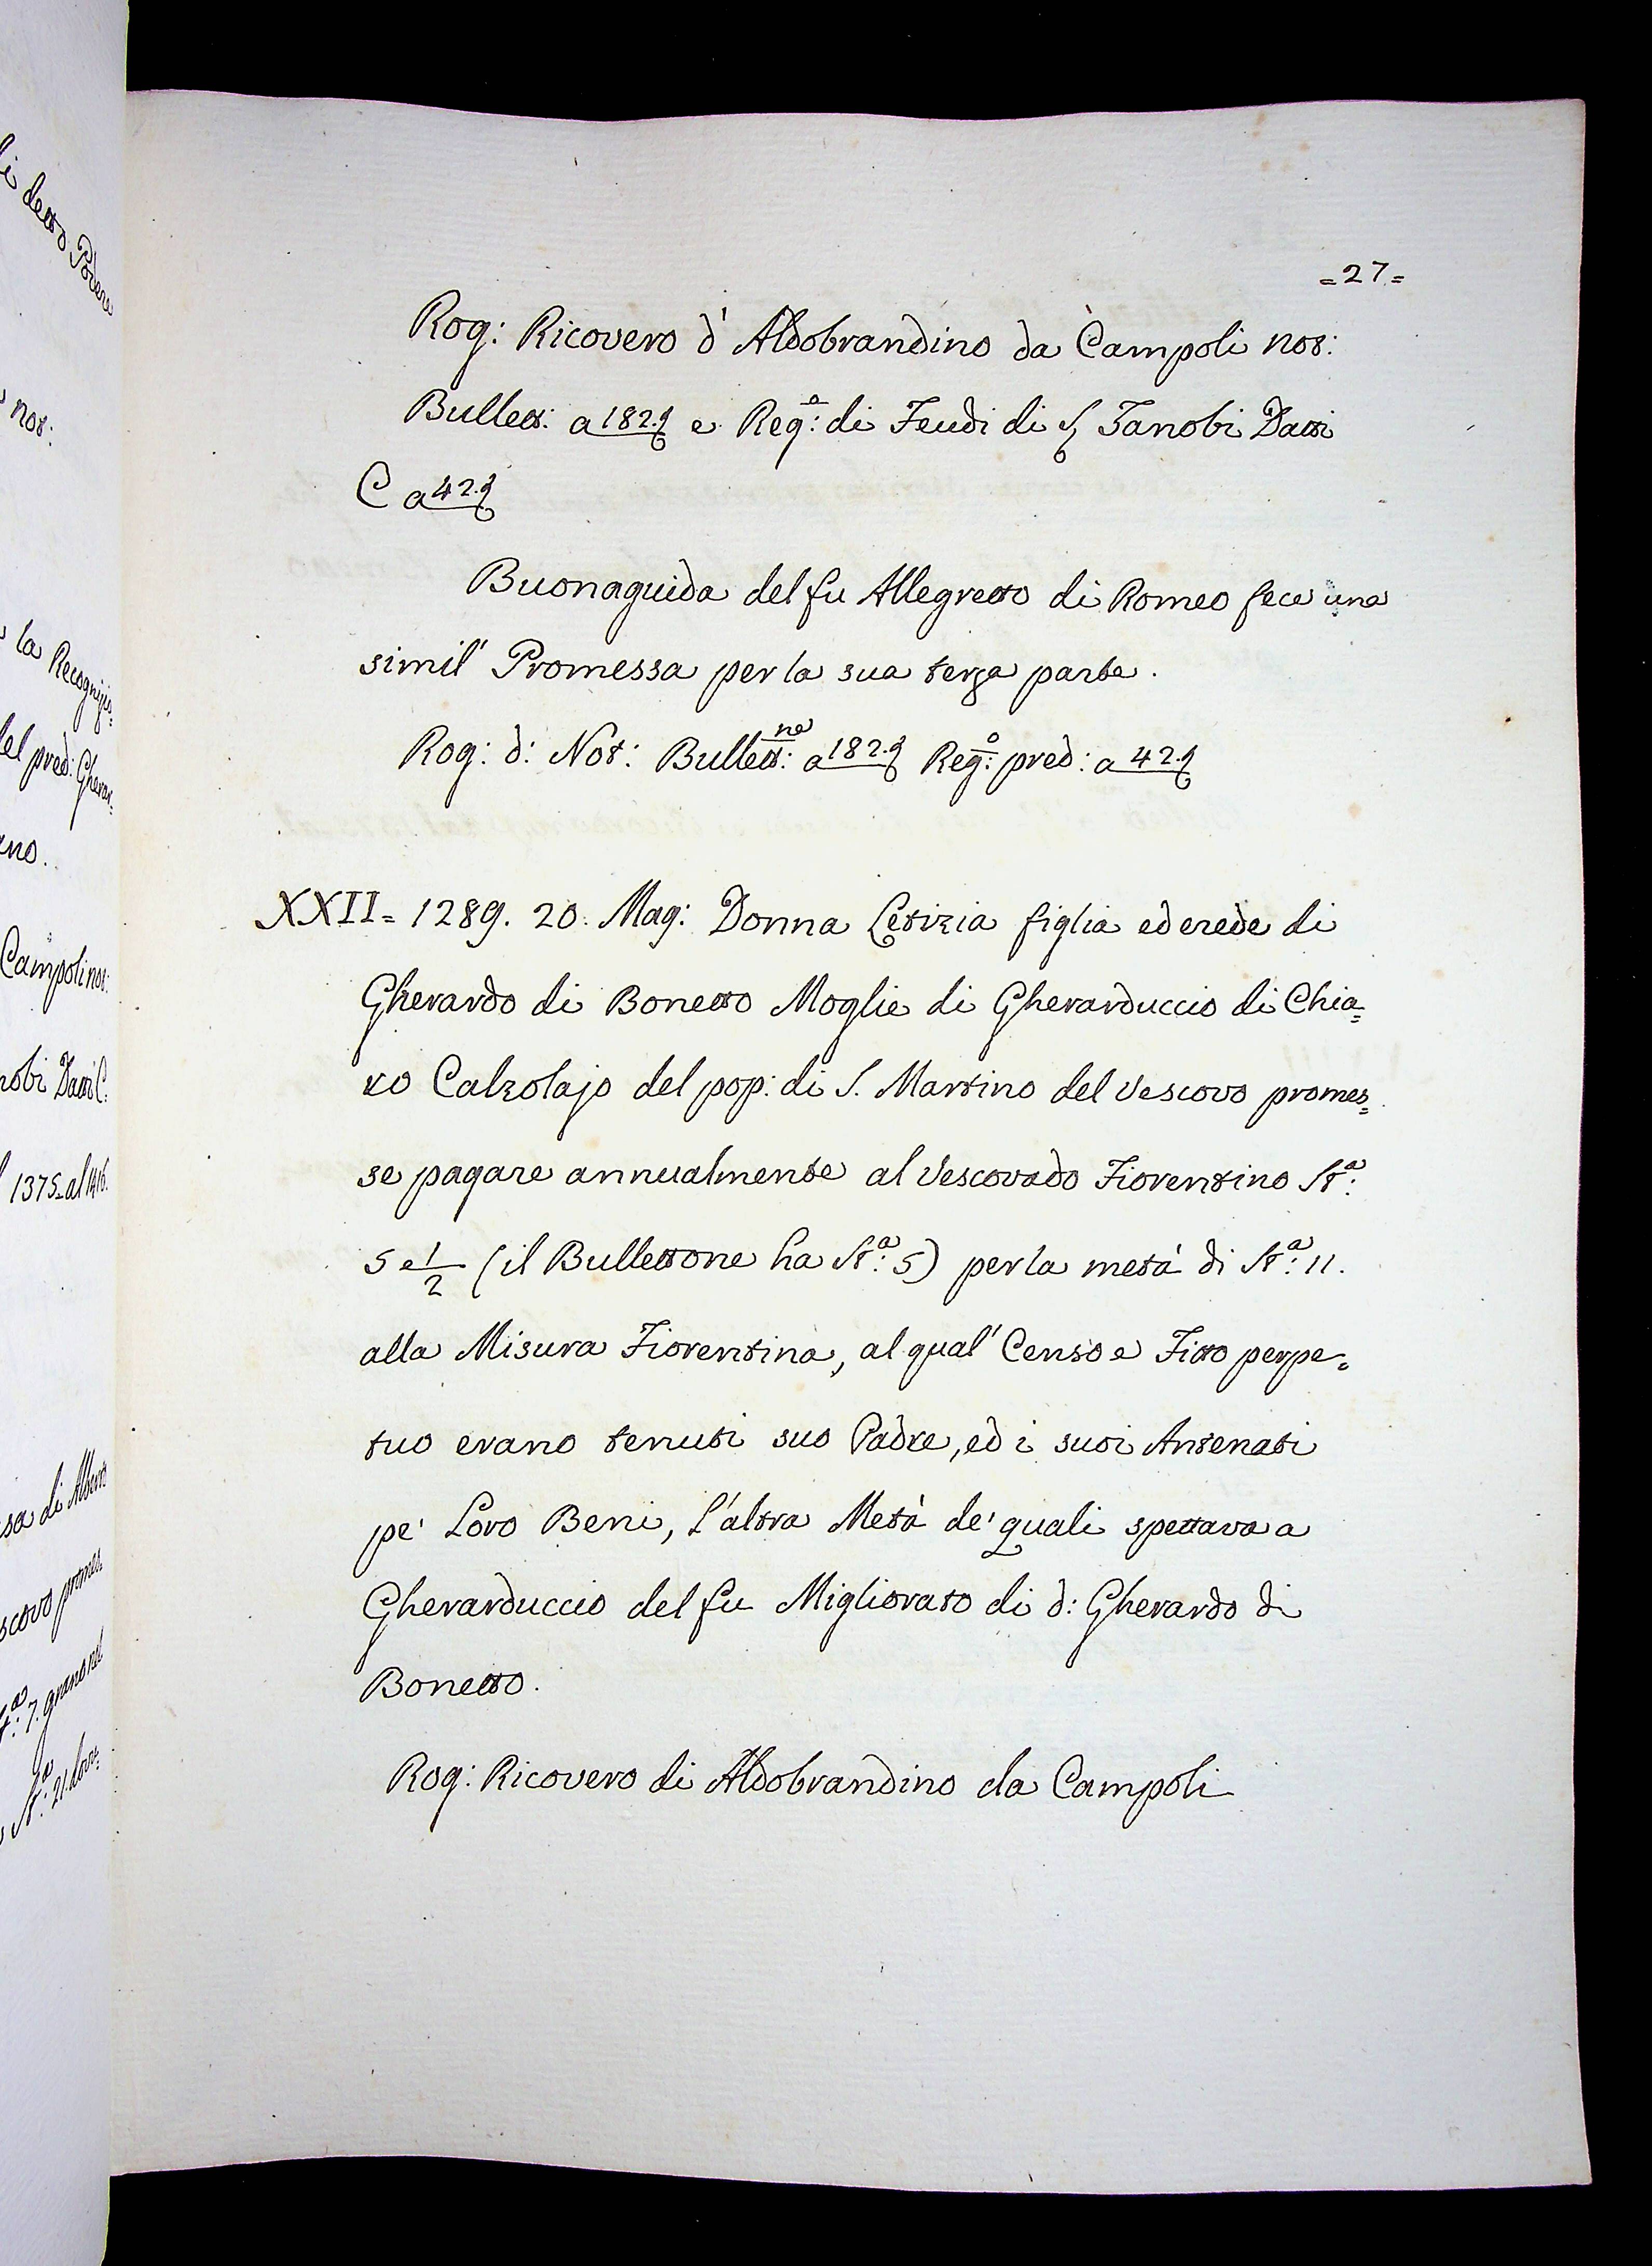 =27=
Rog: Ricovero d'Aldobrandino da Campoli not:
Bullett: a 182. e Reg:º di Feudi di S. Zanobi Datti
C a 42.
Buonaguida del fu Allegretto di Romeo fece una
simil' Promessa per la sua terza parte.
Rog: d: Not: Bullett:ne a 182. Reg:º pred: a 42.
XXII= 1289. 20. Mag: Donna Letizia figlia ed erede di
Gherardo di Bonetto Moglie di Gherarduccio di Chia=
ro Calzolajo del pop: di S. Martino del Vescovo promes=
se pagare annualmente al Vescovado Fiorentino St:a
5 e 1/2 (il Bullettone ha St:a 5) per la metà di St:a 11.
alla Misura Fiorentina, al qual' Censo e Fitto perpe=
tuo erano tenuti suo Padre, ed i suoi Antenati
pe' Loro Beni, l'altra Metà de' quali spettava a
Gherarduccio del fu Migliorato di d: Gherardo di
Bonetto.
Rog: Ricovero di Aldobrandino da Campoli
di detto Podere
not:
la Recognizio=
del pred: Gherar=
Campoli not:
nobi Datti C.
1375. al 1416.
scovo promes
7. grano nel